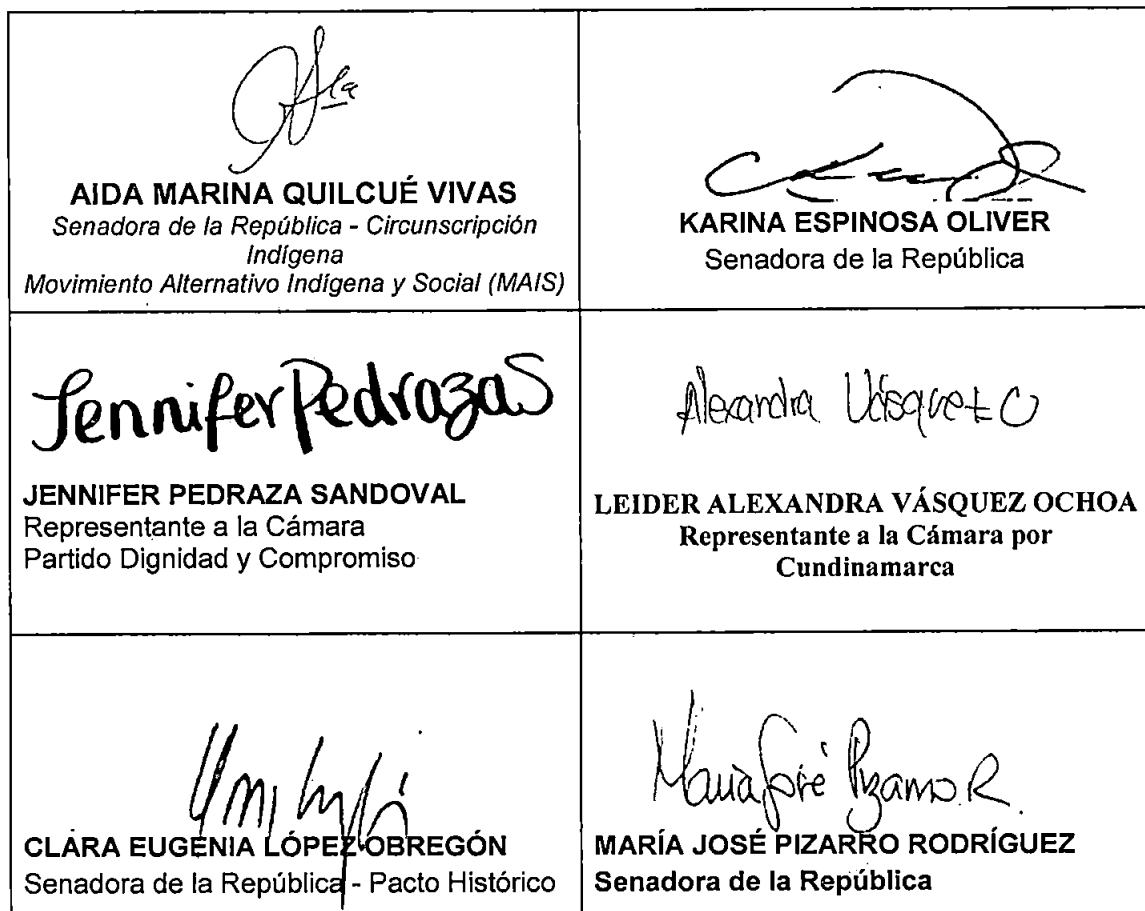 AIDA MARINA QUILCUÉ VIVAS
Senadora de la República - Circunscripción
Indígena
Movimiento Alternativo Indígena y Social (MAIS)
KARINA ESPINOSA OLIVER
Senadora de la República
Jennifer Pedraza S
JENNIFER PEDRAZA SANDOVAL
Representante a la Cámara
Partido Dignidad y Compromiso
Alexandra Vásquez O
LEIDER ALEXANDRA VÁSQUEZ OCHOA
Representante a la Cámara por
Cundinamarca
CLARA EUGENIA LÓPEZ OBREGÓN
Senadora de la República - Pacto Histórico
María José Pizarro R.
MARÍA JOSÉ PIZARRO RODRÍGUEZ
Senadora de la República